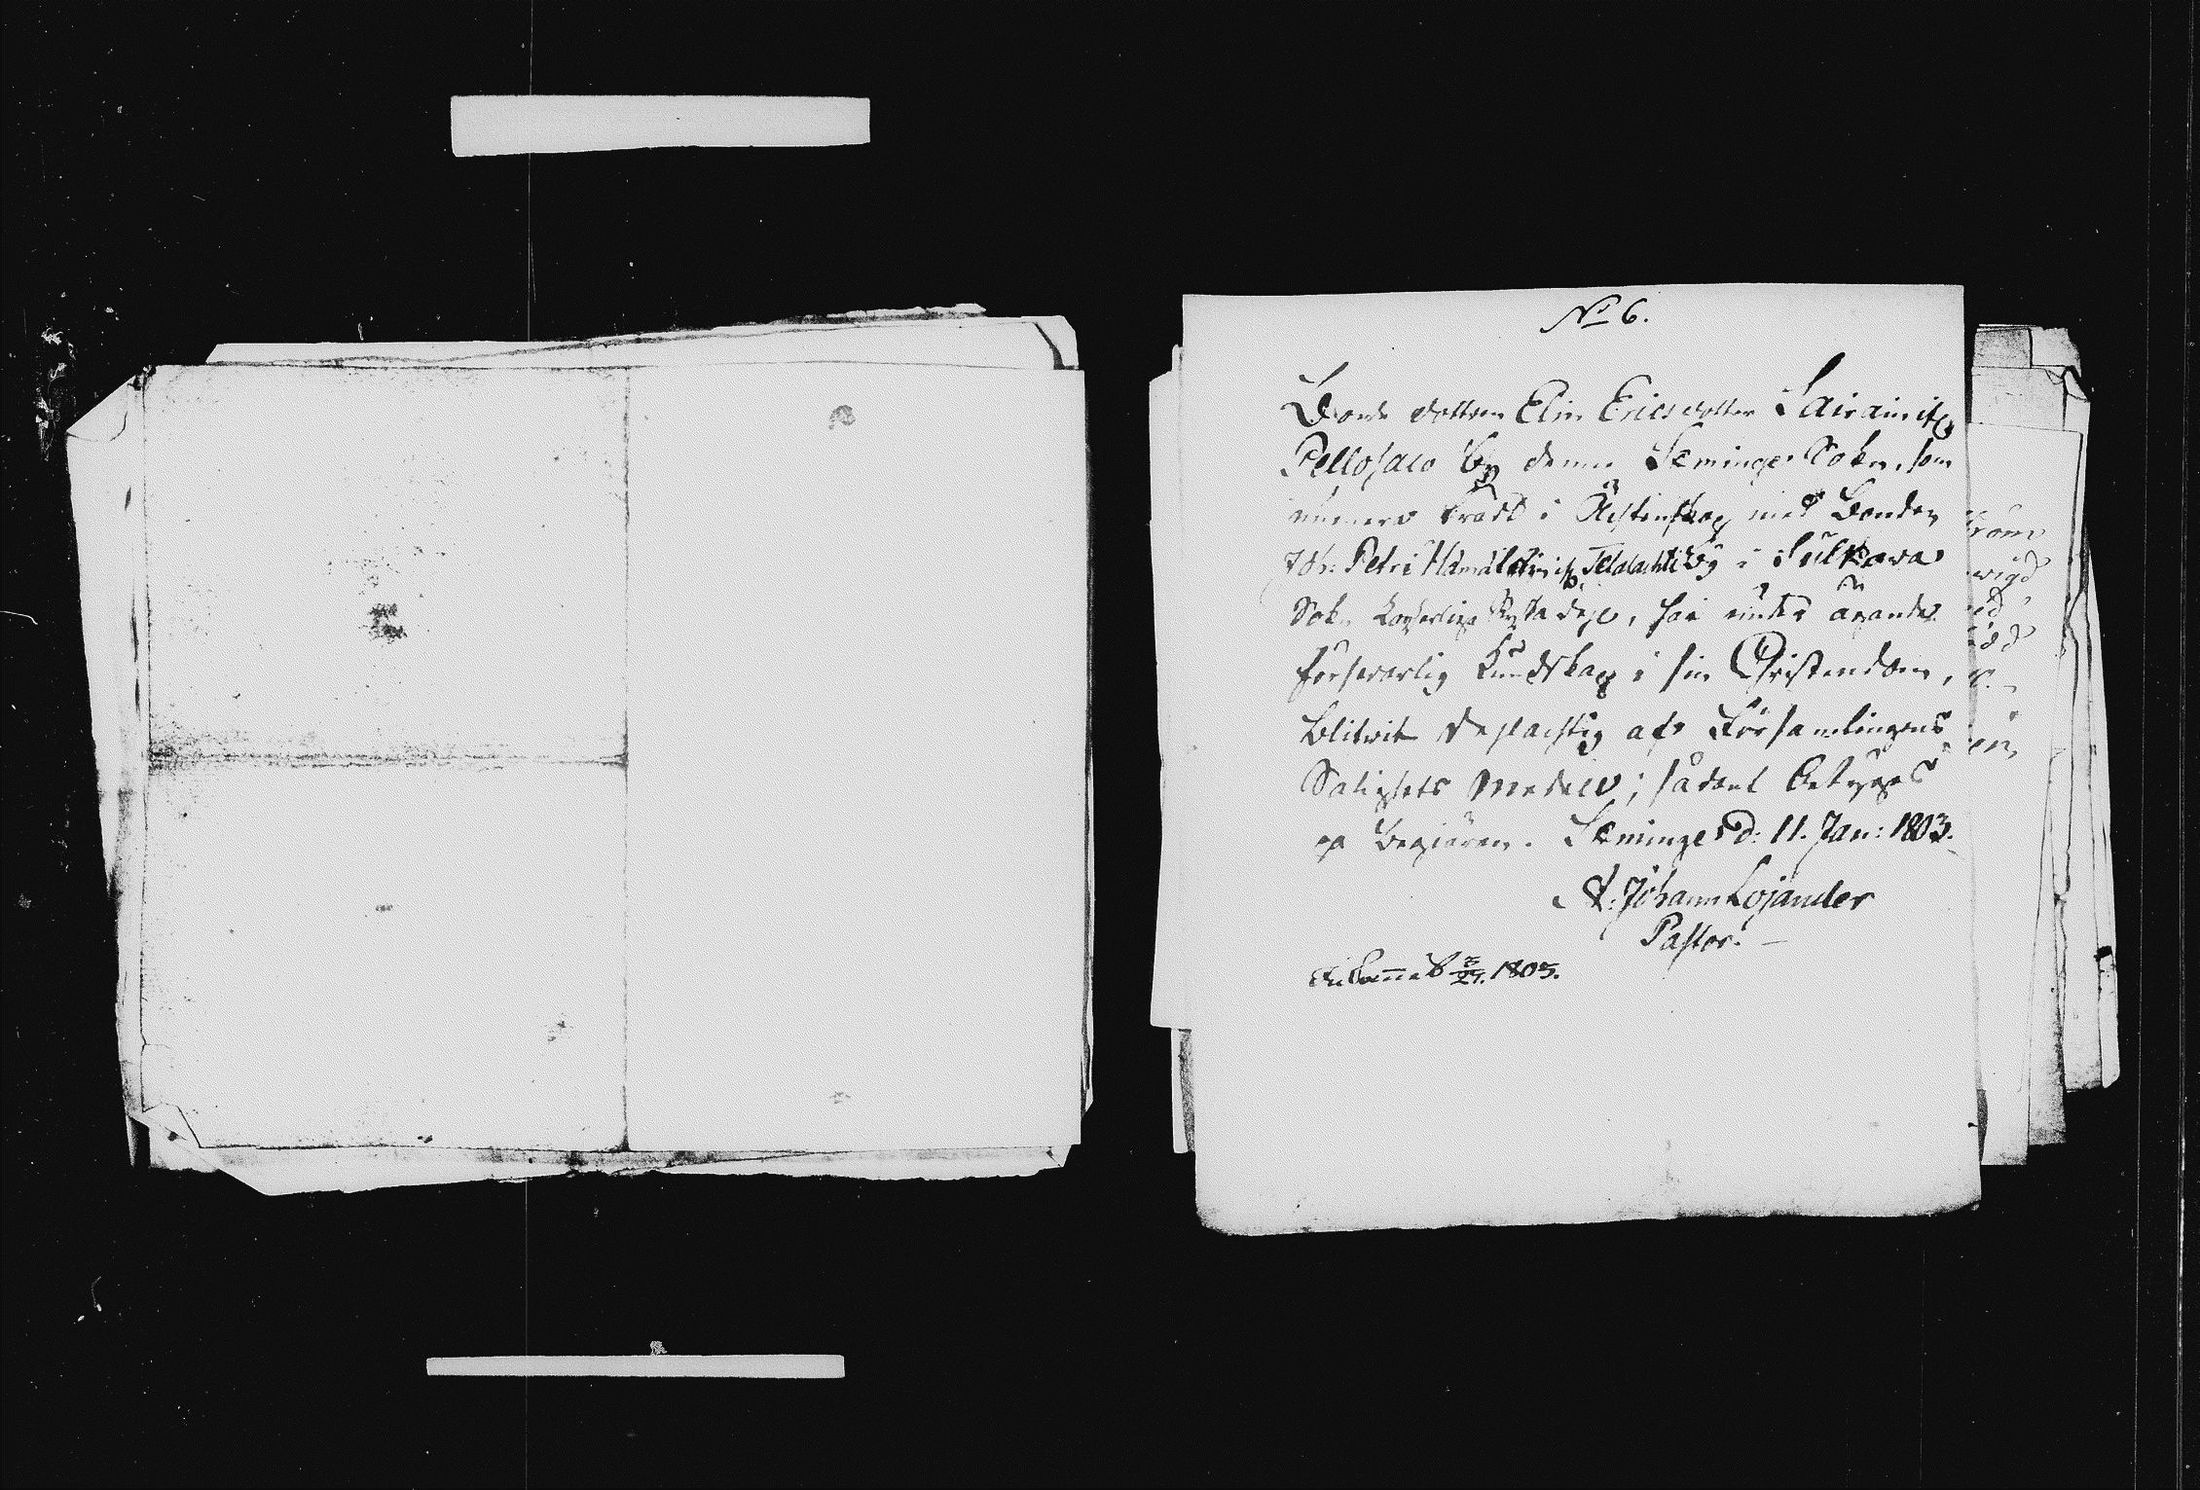 No 6.
Bonde dottren Elin Ericsdotter Sairain ifr.
Pellosalo By denne Sæminge Sokn, som
numera trädt i Ächtenskap med Bonden
Joh: Petri Hämäläin ifr. Telalachti By i Sulkava
Sokn Kejserliga Ryska dehl, har under ägande
försvarlig Kundskap i sin Christendom,
blifvit delachtig af Församlingens
Salighets medel; sådant betygas
på begiäran. Sæminge d: 11. Jan: 1803.
A: Johann Lojander
Pastor. —
1803.